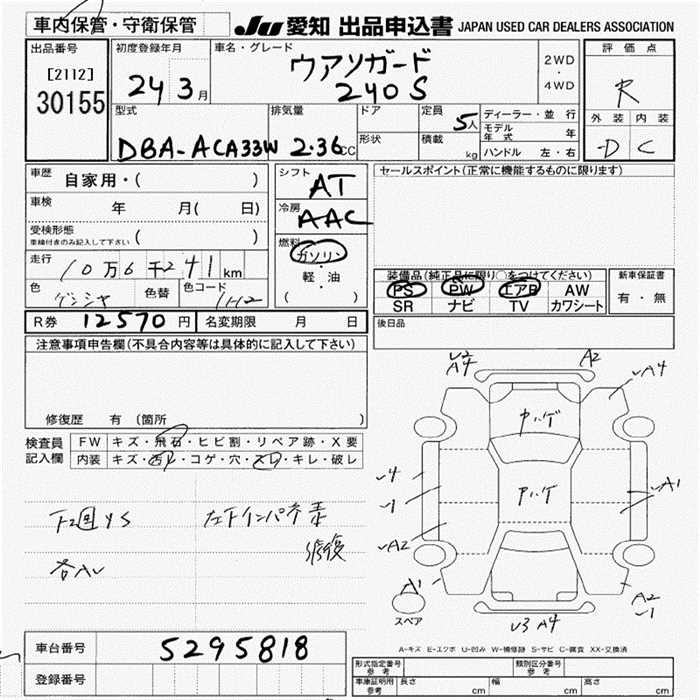 車内保管・守衛保管
JU 愛知 出品申込書 JAPAN USED CAR DEALERS ASSOCIATION
出品番号
[2112]
30155
初度登録年月
24 3月
車名・グレード
240S
2WD
・
4WD
評価点
R
外装 内装
D C
型式
DBA-ACA33W
排気量
2.36cc
ドア
形状
定員
5人
積載
kg
ディーラー・並行
モデル年式 年
ハンドル 左・右
車歴 自家用・( )
車検 年 月( 日)
受検形態
車検付きのみ記入して下さい ( )
走行 10万6千241km
色
色替
色コード
1H2
シフト
AT
冷房
AAC
燃料
ガソリン
・
軽・油
( )
セールスポイント(正常に機能するものに限ります)
装備品(純正品に限り○をつけてください)
PS PW エアB AW
SR ナビ TV カワシート
新車保証書
有・無
R券 12570円 名変期限 月 日
後日品
注意事項申告欄(不具合内容等は具体的に記入して下さい)
修復歴 有 (箇所 )
検査員
記入欄
FW キズ・飛石・ヒビ割・リペア跡・X要
内装 キズ・汚レ・コゲ・穴・スレ・キレ・破レ
A4 A2
A4
4
1
A2
A1
A1
A2
1
U3 A4
下回りS
左下インパネ
修復
スペア
A-キズ E-エクボ U-凹み W-補修跡 S-サビ C-腐食 XX-交換済
車台番号 5295818
登録番号
形式指定番号
参考
類別区分番号
参考
車庫証明用
参考
長さ cm 幅 cm 高さ cm